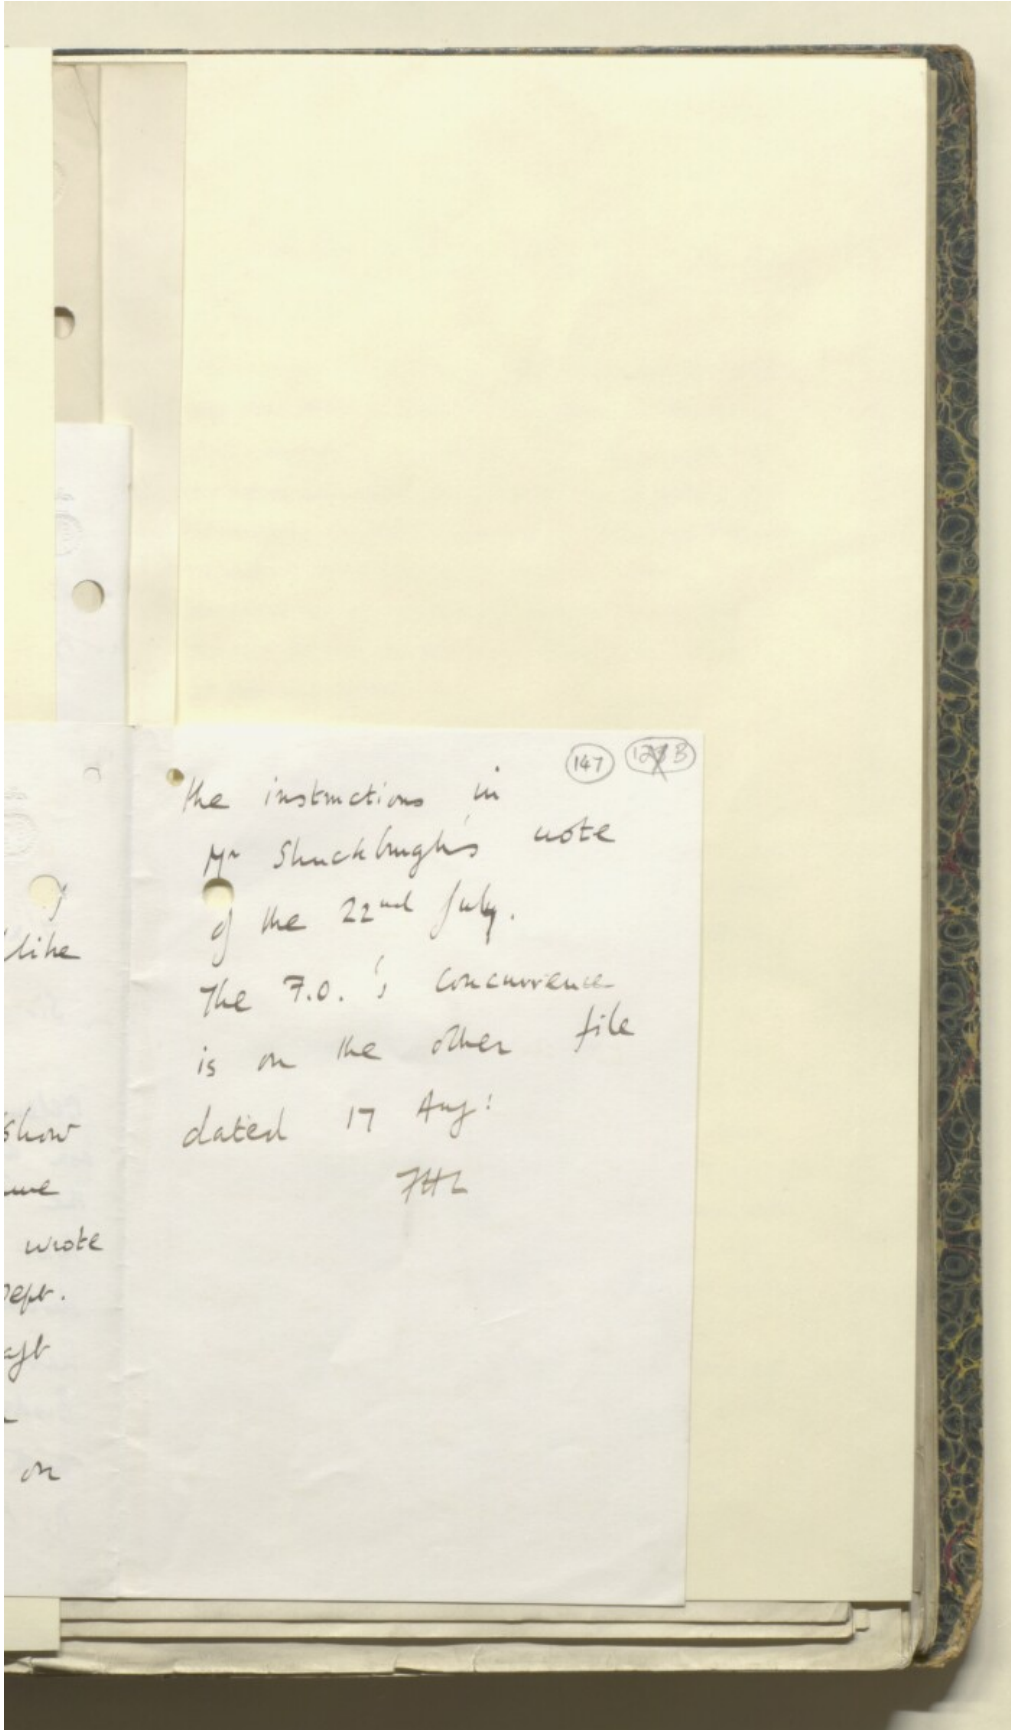 147 127B
the instructions in
Mr Shuckburgh's note
of the 22nd July.
The F.O.'s concurrence
is on the other file
dated 17 Aug:
FHL
like
show
wrote
Dept.
on